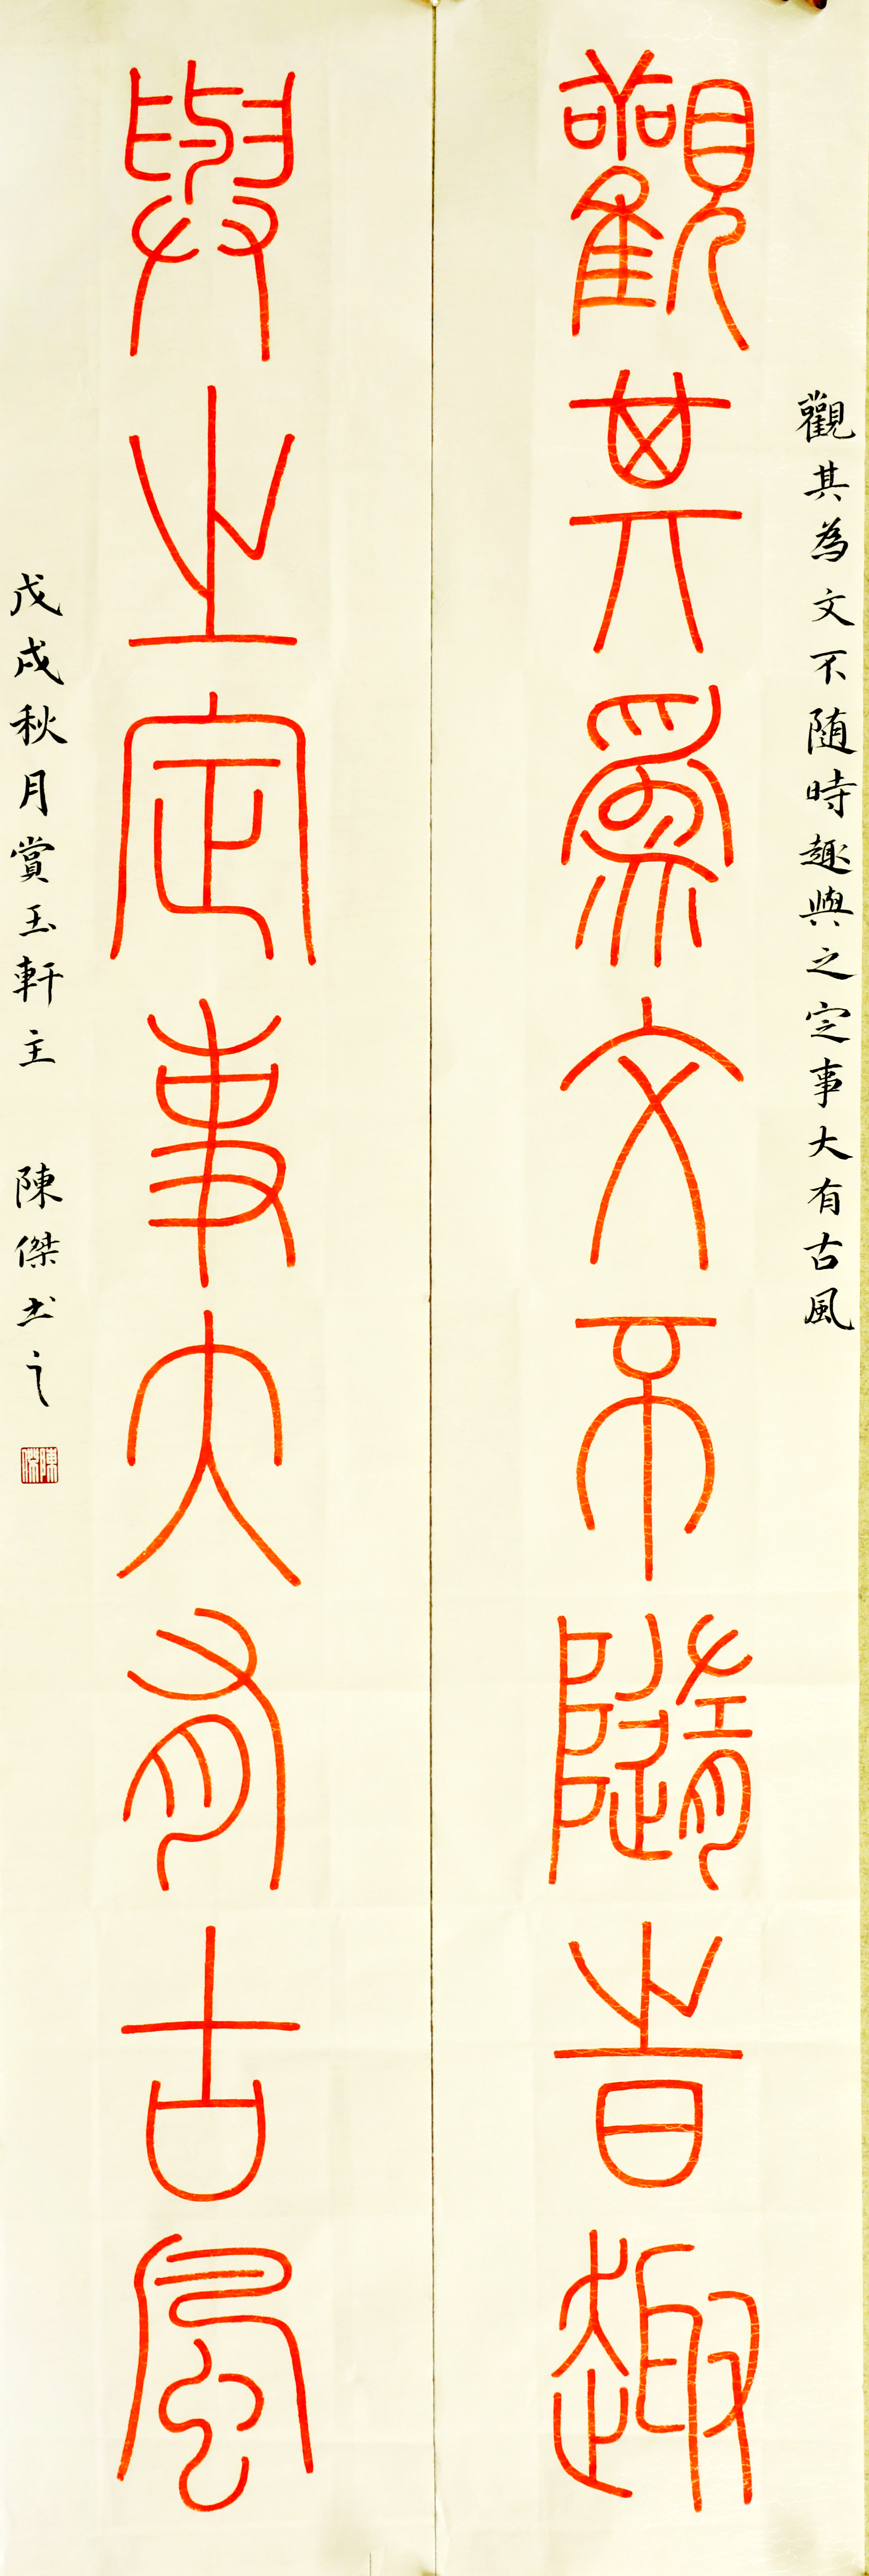 觀其為文不隨時趣與之定事大有古風
觀其爲文不隨旹趣
與之定事大有古風
戊戌秋月賞玉軒主 陳傑书之
陳傑